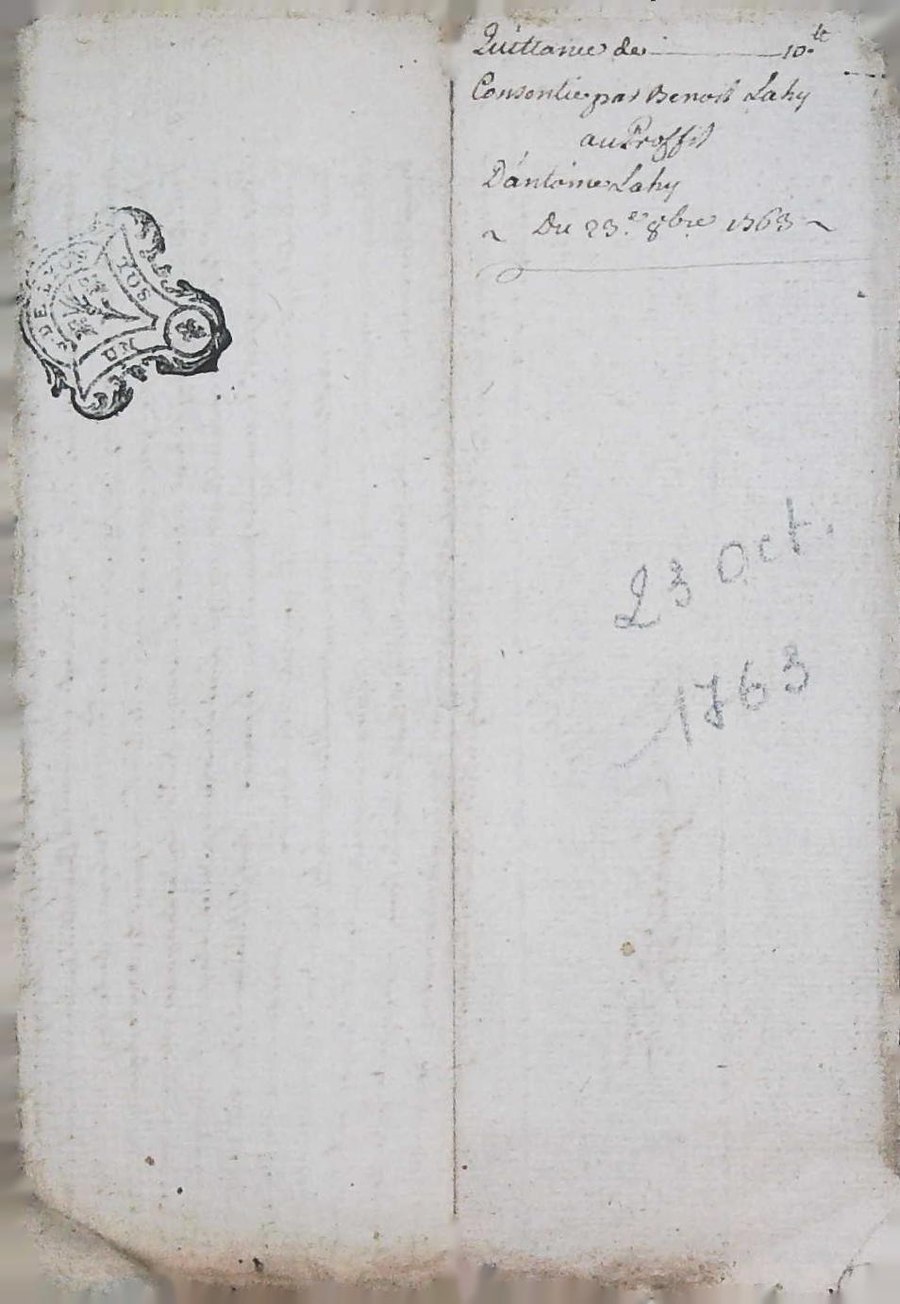 Quittance de ——— 10.tt
Consentie par Benoit Lahy
au Proffit
D'antoine Lahy
~ Du 23.e 8bre 1763 ~
23 oct.
1763
DE LYON
TOS
UN